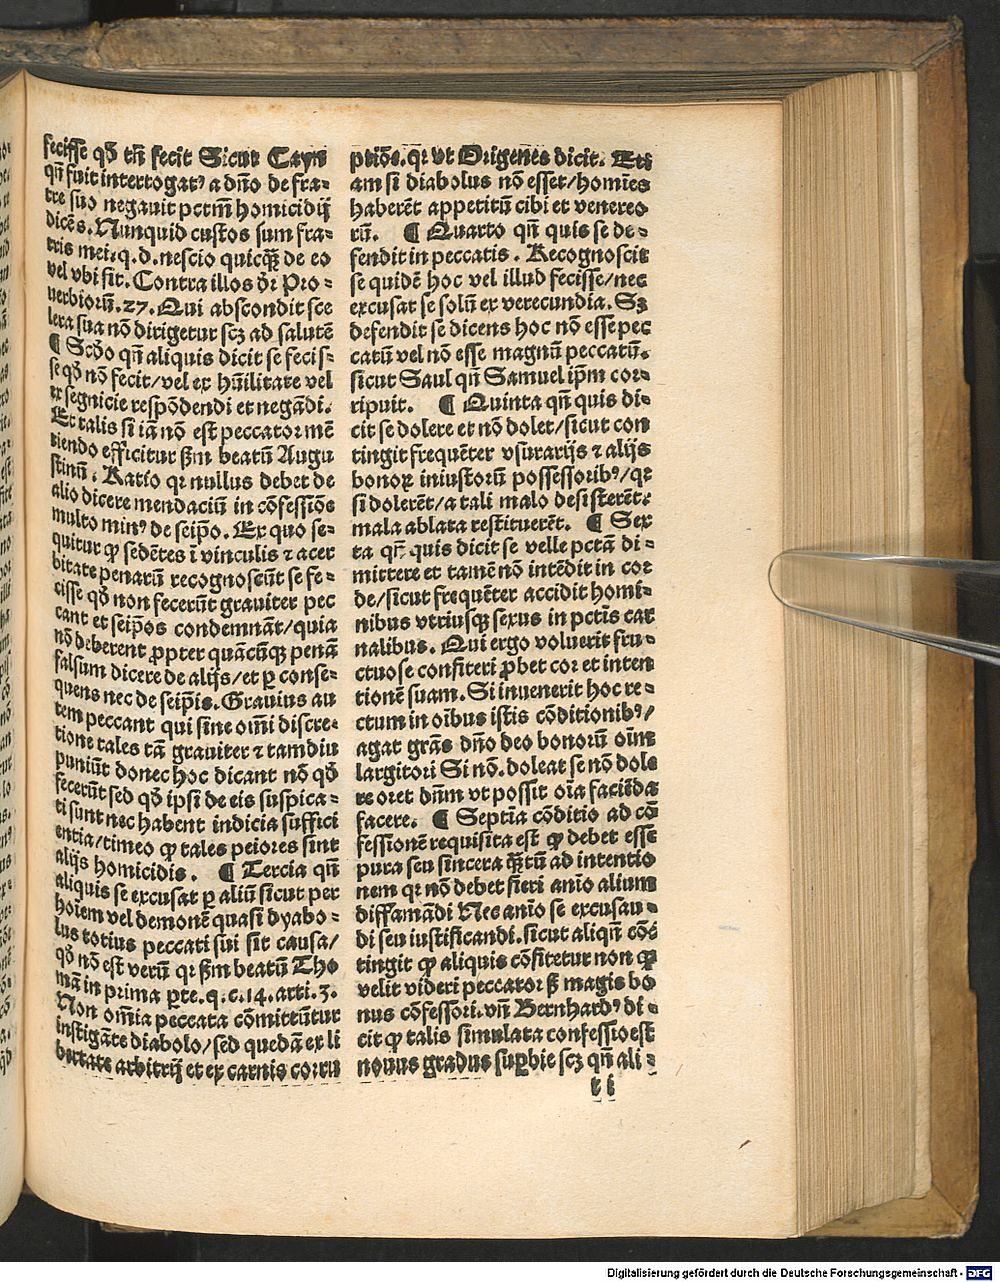 fecisse qḋ tñ fecit Sicut Cayn
qñ fuit interrogatꝰ a dño de fra-
tre suo negauit pctm̄ homicidij
dicēs. Nunquid custos sum fra-
tris mei. q.d. nescio quicq̄ꝫ de eo
vel vbi sit. Contra illos dr̄ Pro-
uerbiorū. 27. Qui abscondit sce
lera sua nō dirigetur scꝫ ad salutē
¶ Scḋo qñ aliquis dicit se fecis-
se qḋ nō fecit/vel ex hūilitate vel
ex segnicie respōdendi et negādi.
Et talis si iā nō est peccator mē
tiendo efficitur ẜm beatū Augu
stinū. Ratio qꝛ nullus debet de
alio dicere mendaciū in cōfessiōe
multo minꝰ de seip̄o. Ex quo se-
quitur ꝙ sedētes ī vinculis ⁊ acer
bitate penarū recognoscūt se fe-
cisse qḋ non fecerūt grauiter pec
cant et seip̄os condemnāt/quia
nō deberent ꝓpter quācūqꝫ penā
falsum dicere de alijs/et ꝑ conse-
quens nec de seip̄is. Grauius au
tem peccant qui sine om̄i discre-
tione tales tā grauiter ⁊ tamdiu
puniūt donec hoc dicant nō qḋ
fecerūt sed qḋ ipsi de eis suspica-
ti sunt nec habent indicia suffici
entia/timeo ꝙ tales peiores sint
alijs homicidis. ¶ Tercia qñ
aliquis se excusat ꝑ aliū sicut per
hoīem vel demonē quasi dyabo-
lus totius peccati sui sit causa/
qḋ nō est verū qꝛ ẜm beatū Tho
mā in prima ꝑte. q. c. 14. arti. 3.
Non om̄ia peccata cōmittūtur
instigāte diabolo/sed quedā ex li
bertate arbitrij et ex carnis corru
ptiōe. qꝛ vt Origenes dicit. Eti
am si diabolus nō esset/homīes
haberēt appetitū cibi et venereo
rū. ¶ Quarto qñ quis se de-
fendit in peccatis. Recognoscit
se quidē hoc vel illud fecisse/nec
excusat se solū ex verecundia. Sꝫ
defendit se dicens hoc nō esse pec
catū vel nō esse magnū peccatū.
sicut Saul qñ Samuel ip̄m cor-
ripuit. ¶ Quinta qñ quis di-
cit se dolere et nō dolet/sicut con
tingit frequēter vsurarijs ⁊ alijs
bonoꝝ iniustorū possessoribꝰ/qꝛ
si dolerēt/a tali malo desisterēt:
mala ablata restituerēt. ¶ Sex
ta qñ quis dicit se velle pctā di-
mittere et tamē nō intēdit in cor
de/sicut frequēter accidit homi-
nibus vtriusqꝫ sexus in pctīs car
nalibus. Qui ergo voluerit fru-
ctuose confiteri ꝓbet cor et inten
tionē suam. Si inuenerit hoc re-
ctum in oībus istis cōditionibꝰ/
agat grās dño deo bonorū oīm
largitori Si nō. doleat se nō dole
re oret dn̄m vt possit oīa faciēda
facere. ¶ Septīa cōditio ad cō
fessionē requisita est ꝙ debet esse
pura seu sincera q̄ꝫtū ad intentio
nem qꝛ nō debet fieri anīo alium
diffamādi Nec anīo se excusan-
di seu iustificandi. sicut aliqñ cōe
tingit ꝙ aliquis cōfitetur non ꝙ
velit videri peccator ẜꝫ magis bo
nus cōfessori. vñ Bernhardꝰ di-
cit ꝙ talis simulata confessio est
nouus gradus suꝑbie scꝫ qñ ali-
t i
Digitalisierung gefördert durch die Deutsche Forschungsgemeinschaft - DFG